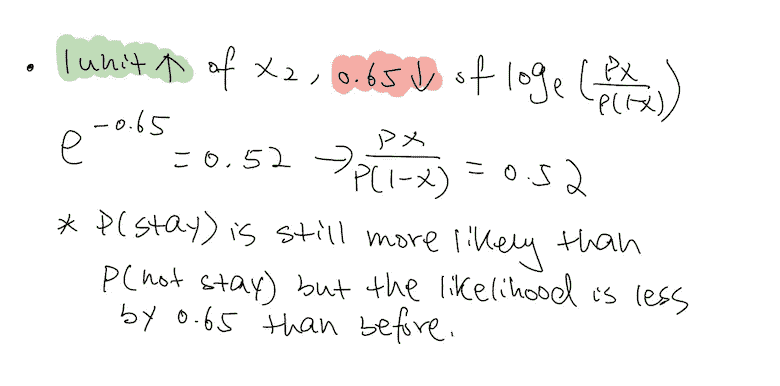 • 1 unit ↑ of x₂, 0.65 ↓ of loge (Px / P(1-x))
e^-0.65 = 0.52 → Px / P(1-x) = 0.52
* P(stay) is still more likely than
P(not stay) but the likelihood is less
by 0.65 than before.